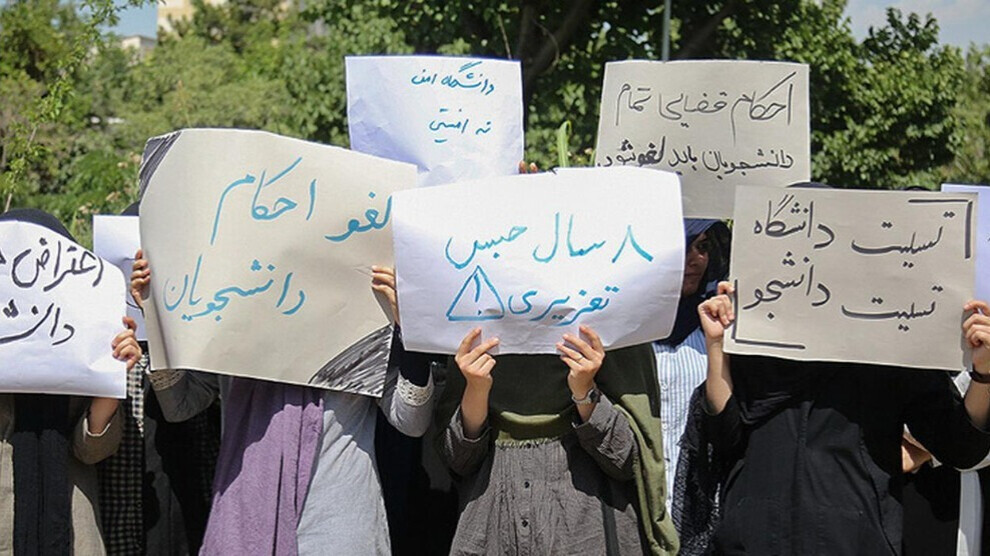 دانشگاه امن
نه امنیتی
احکام قضایی تمام
دانشجویان باید لغو شود.
لغو احکام
دانشجویان
۸ سال حبس
تعزیری
تسلیت دانشگاه
تسلیت دانشجو
اعتراض